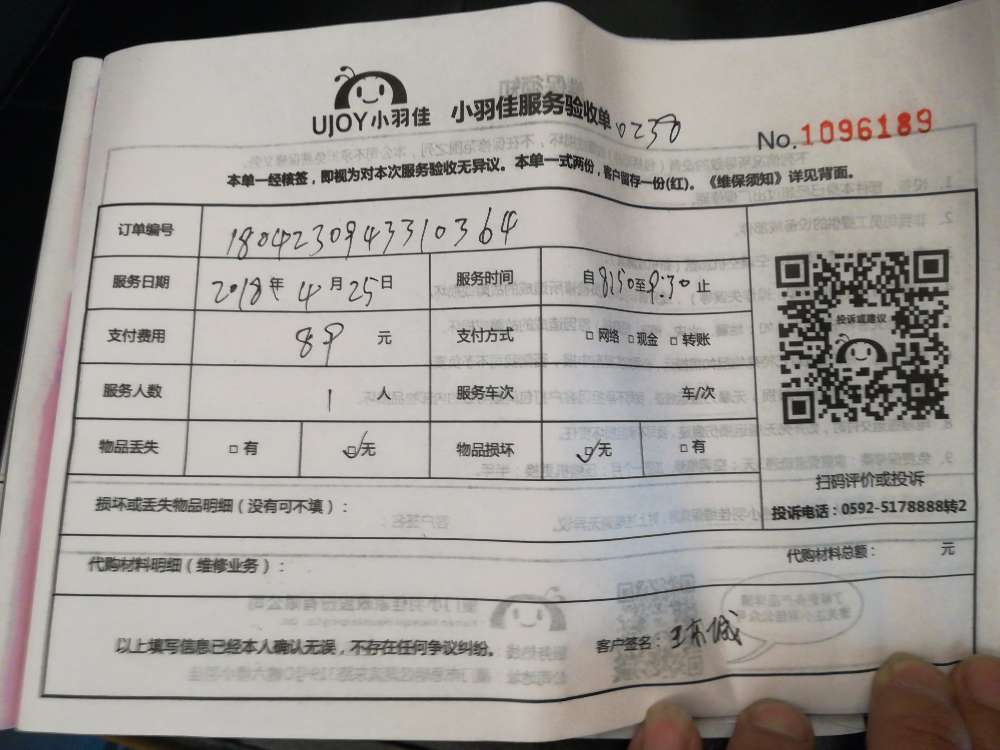 UJOY小羽佳 小羽佳服务验收单 0230
No.1096189
本单一经核签，即视为对本次服务验收无异议。本单一式两份，客户留存一份(红)。《维保须知》详见背面。
订单编号 1804230943310364
服务日期 2018年4月25日 服务时间 自8:50至9:30止
支付费用 89 元 支付方式 □网络 □现金 □转账
投诉或建议
服务人数 1 人 服务车次 车/次
物品丢失 □有 ☑无 物品损坏 ☑无 □有
扫码评价或投诉
损坏或丢失物品明细（没有可不填）：
投诉电话：0592-5178888转2
代购材料明细（维修业务）： 代购材料总额： 元
以上填写信息已经本人确认无误，不存在任何争议纠纷。 客户签名：